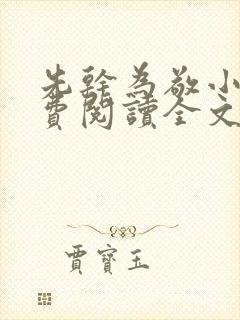 先幹為敬小
費閱讀全文
賈寶玉